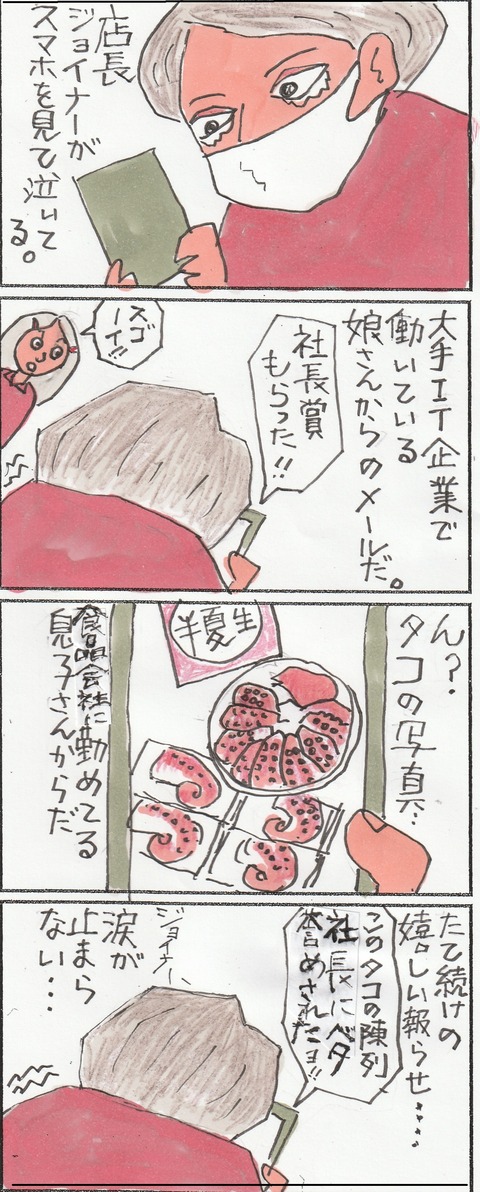 店長
ジョイナーが
スマホを見て、泣いて
る。
大手IT企業で
働いている
娘さんからのメールだ。
社長賞
もらった!!
スゴ
ーイ!!
ん?
タコの写真…
半夏生
食品会社に勤めてる
息子さんからだ
たて続けの
嬉しい報らせ……
このタコの陳列
社長にベタ
誉めされたヨ!!
ジョイナー
涙が
止まら
ない…